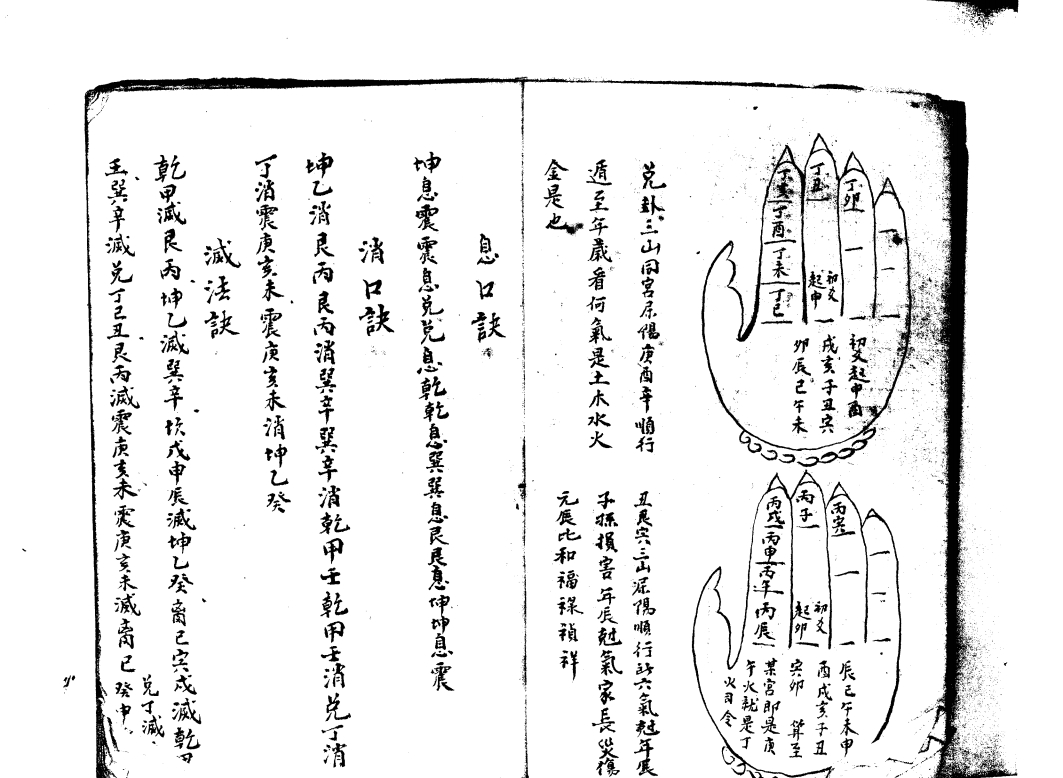 丁卯
丁丑
丁亥
丁酉
丁未
丁巳
初爻
起申
初爻起申酉
戌亥子丑寅
卯辰巳午未
丙寅
丙子
丙戌
丙申
丙午
丙辰
初爻
起卯
辰巳午未申
酉戌亥子丑
寅卯 算至
某宮即是庚
午火就是丁
火司令
兌卦三山同宮屬陽庚酉辛順行
遁至年歲看何氣是土木水火
金是也
丑艮寅三山屬陽順行此六氣尅年辰
子孫損害年辰尅氣家長災傷
元辰比和福祿禎祥
息口訣
坤息震震息兌兌息乾乾息巽巽息艮艮息坤坤息震
消口訣
坤乙消艮丙艮丙消巽辛巽辛消乾甲壬乾甲壬消兌丁消
丁消震庚亥未震庚亥未消坤乙癸
滅法訣
乾甲滅艮丙坤乙滅巽辛坎戊申辰滅坤乙癸离己寅戌滅乾甲
壬巽辛滅兌丁巳丑艮丙滅震庚亥未震庚亥未滅离巳
兌丁滅
癸申